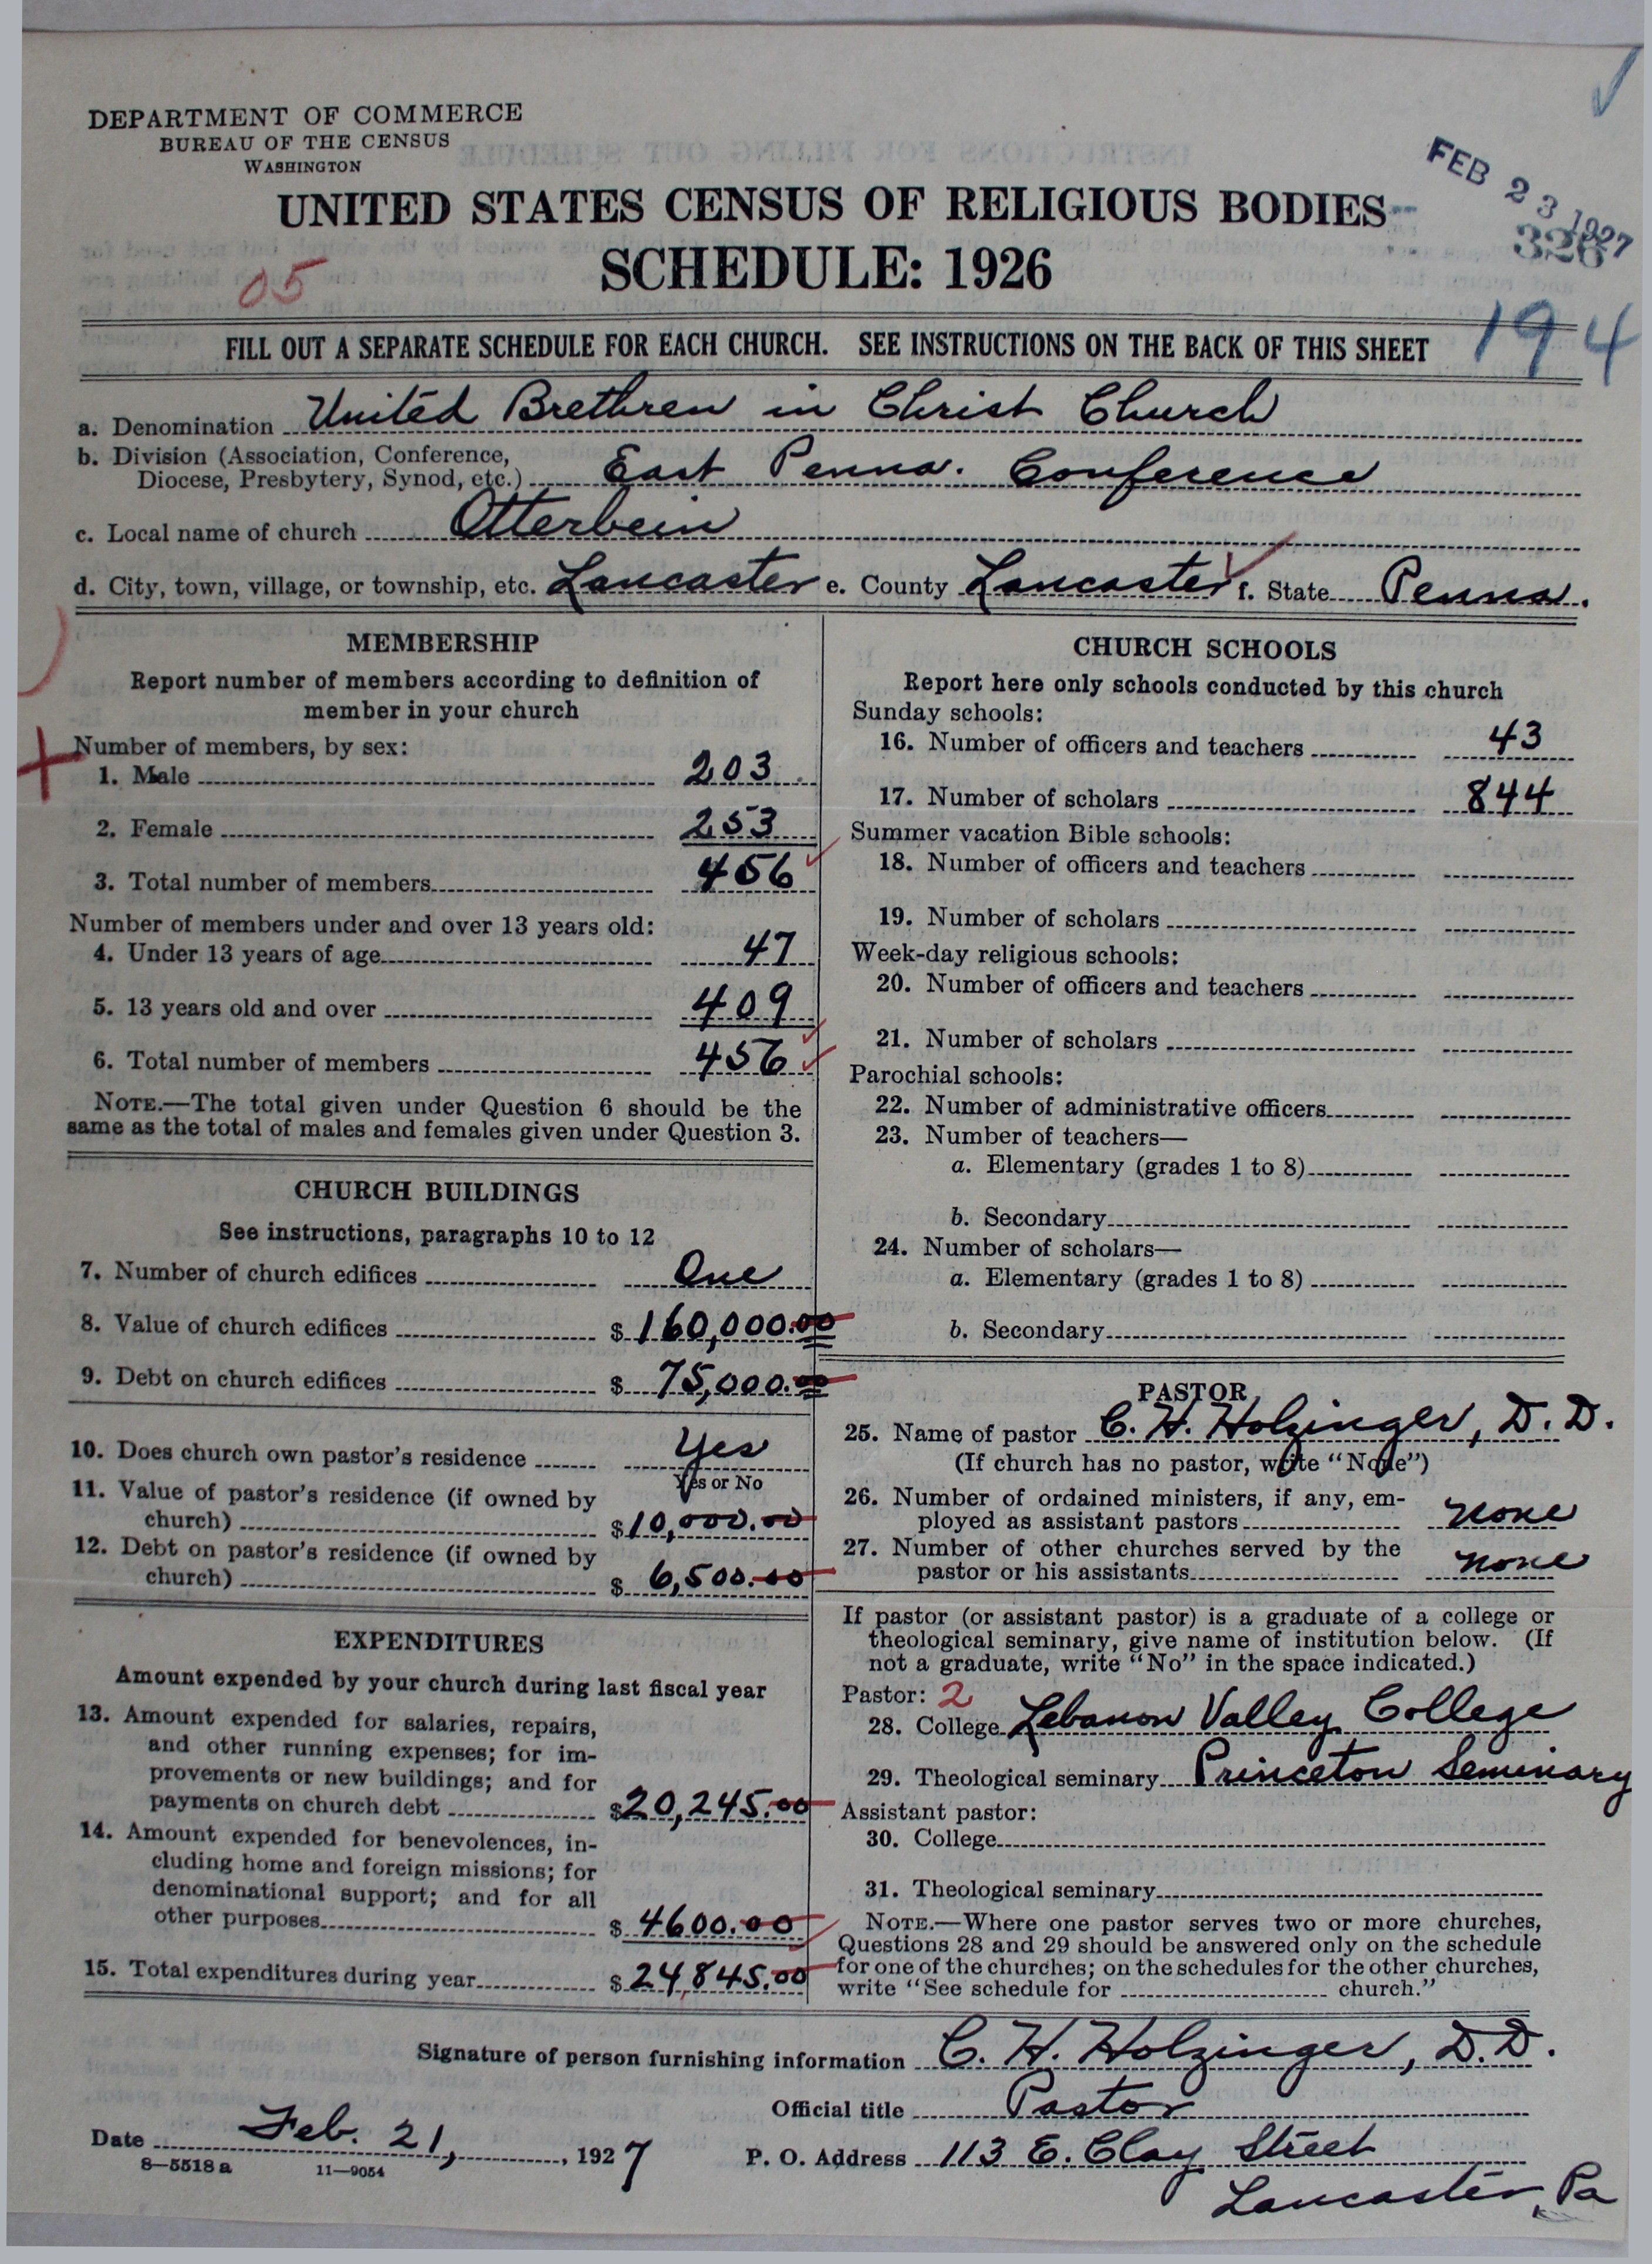 DEPARTMENT OF COMMERCE
BUREAU OF THE CENSUS
WASHINGTON
UNITED STATES CENSUS OF RELIGIOUS BODIES
SCHEDULE: 1926
FEB 23 1927
326
05
194
FILL OUT A SEPARATE SCHEDULE FOR EACH CHURCH. SEE INSTRUCTIONS ON THE BACK OF THIS SHEET
a. Denomination United Brethren in Christ Church
b. Division (Association, Conference,
Diocese, Presbytery, Synod, etc.) East Penna. Conference
c. Local name of church Otterbein
d. City, town, village, or township, etc. Lancaster e. County Lancaster f. State Penna.
MEMBERSHIP
Report number of members according to definition of
member in your church
Number of members, by sex:
1. Male 203
2. Female 253
3. Total number of members 456
Number of members under and over 13 years old:
4. Under 13 years of age 47
5. 13 years old and over 409
6. Total number of members 456
NOTE.—The total given under Question 6 should be the
same as the total of males and females given under Question 3.
CHURCH BUILDINGS
See instructions, paragraphs 10 to 12
7. Number of church edifices One
8. Value of church edifices $160,000.00
9. Debt on church edifices $75,000.00
10. Does church own pastor's residence Yes
Yes or No
11. Value of pastor's residence (if owned by
church) $10,000.00
12. Debt on pastor's residence (if owned by
church) $6,500.00
EXPENDITURES
Amount expended by your church during last fiscal year
13. Amount expended for salaries, repairs,
and other running expenses; for im-
provements or new buildings; and for
payments on church debt $20,245.00
14. Amount expended for benevolences, in-
cluding home and foreign missions; for
denominational support; and for all
other purposes $4600.00
15. Total expenditures during year $24,845.00
CHURCH SCHOOLS
Report here only schools conducted by this church
Sunday schools:
16. Number of officers and teachers 43
17. Number of scholars 844
Summer vacation Bible schools:
18. Number of officers and teachers
19. Number of scholars
Week-day religious schools:
20. Number of officers and teachers
21. Number of scholars
Parochial schools:
22. Number of administrative officers
23. Number of teachers—
a. Elementary (grades 1 to 8)
b. Secondary
24. Number of scholars—
a. Elementary (grades 1 to 8)
b. Secondary
PASTOR
25. Name of pastor C. H. Holzinger, D. D.
(If church has no pastor, write "None")
26. Number of ordained ministers, if any, em-
ployed as assistant pastors none
27. Number of other churches served by the
pastor or his assistants none
If pastor (or assistant pastor) is a graduate of a college or
theological seminary, give name of institution below. (If
not a graduate, write "No" in the space indicated.)
Pastor: 2
28. College Lebanon Valley College
29. Theological seminary Princeton Seminary
Assistant pastor:
30. College
31. Theological seminary
NOTE.—Where one pastor serves two or more churches,
Questions 28 and 29 should be answered only on the schedule
for one of the churches; on the schedules for the other churches,
write "See schedule for church."
Signature of person furnishing information C. H. Holzinger, D.D.
Official title Pastor
Date Feb. 21, , 1927
P. O. Address 113 E. Clay Street
Lancaster, Pa
8—5518 a 11—9054